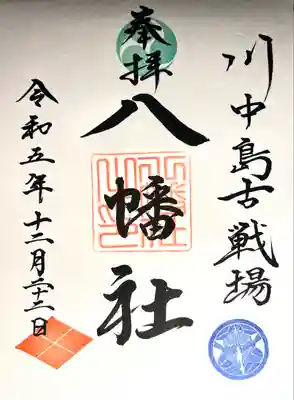 川中島古戦場
奉拝
八幡社
令和五年十二月二十二日